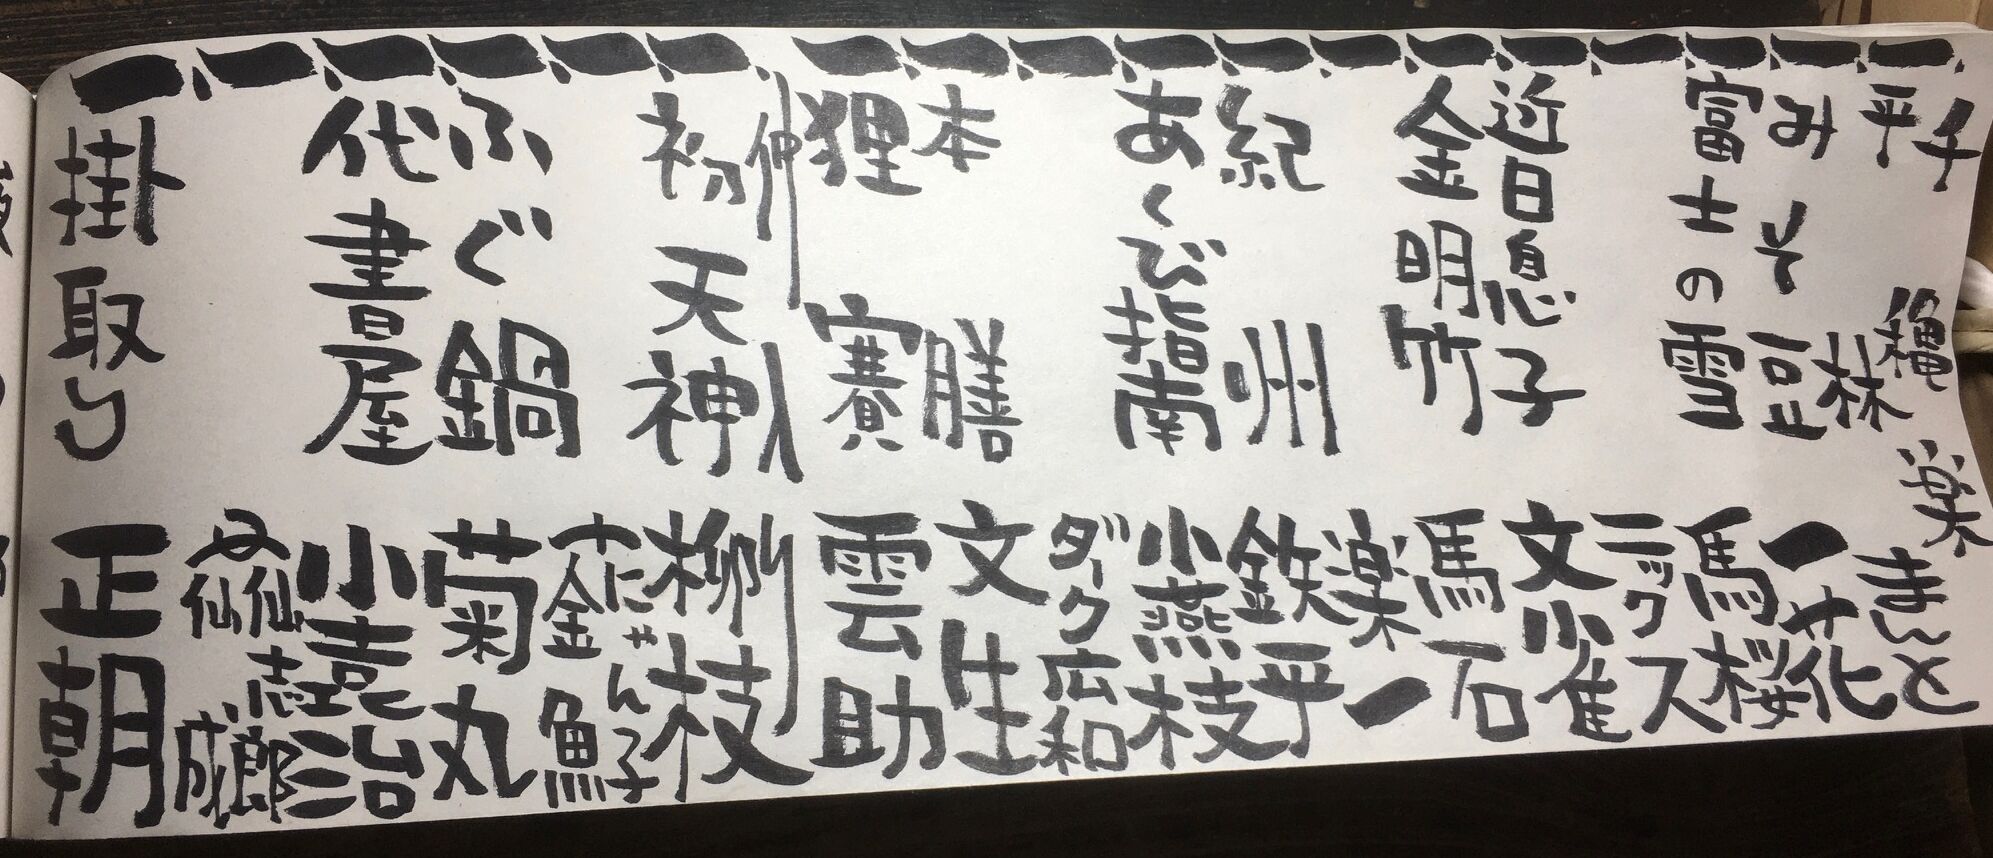 千穐楽
一、平林 まんと
一、みそ豆 一花
一、富士の雪 馬桜
一、ニックス
一、近日息子 文雀
一、金明竹 馬石
一、楽一
一、紀州 鉄平
一、あくび指南 小燕枝
一、ダーク広和
一、本膳 文生
一、狸賽 雲助
仲入り
一、初天神 柳枝
一、にゃん子 金魚
一、ふぐ鍋 菊丸
一、代書屋 小袁治
一、仙志郎 仙成
一、掛取り 正朝